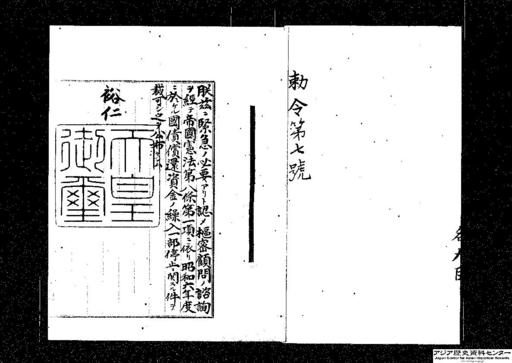 勅令第七號
朕茲ニ緊急ノ必要アリト認メ樞密顧問ノ諮詢
ヲ經テ帝國憲法第八條第一項ニ依リ昭和六年度
ニ於ケル國債償還資金ノ繰入一部停止ニ關スル件ヲ
裁可シ之ヲ公布セシム
裕仁
天皇
御璽
アジア歴史資料センター
Japan Center for Asian Historical Records